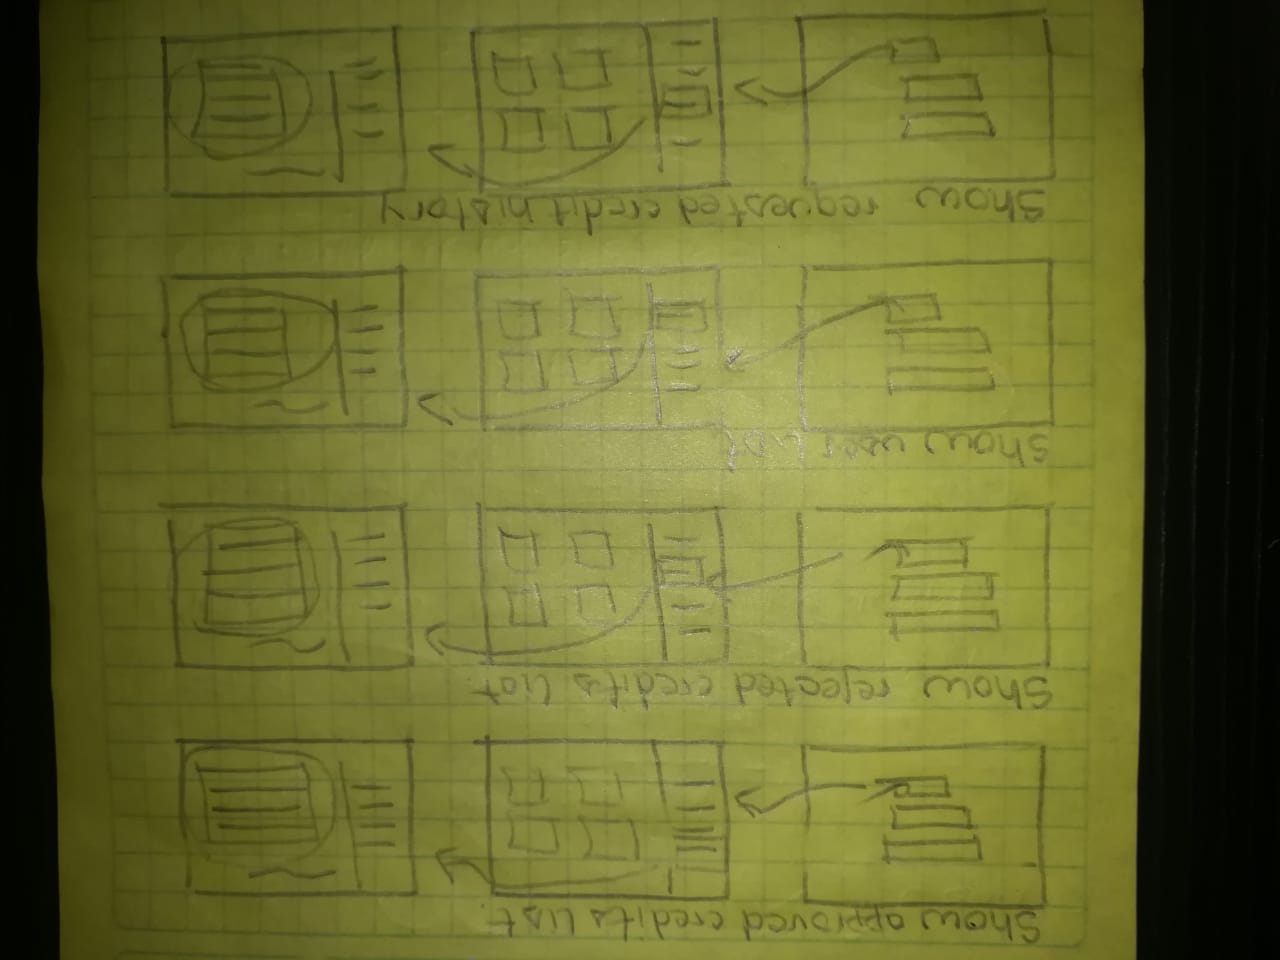 Show approved credits list
Show rejected credits list
Show user list
Show requested credit history